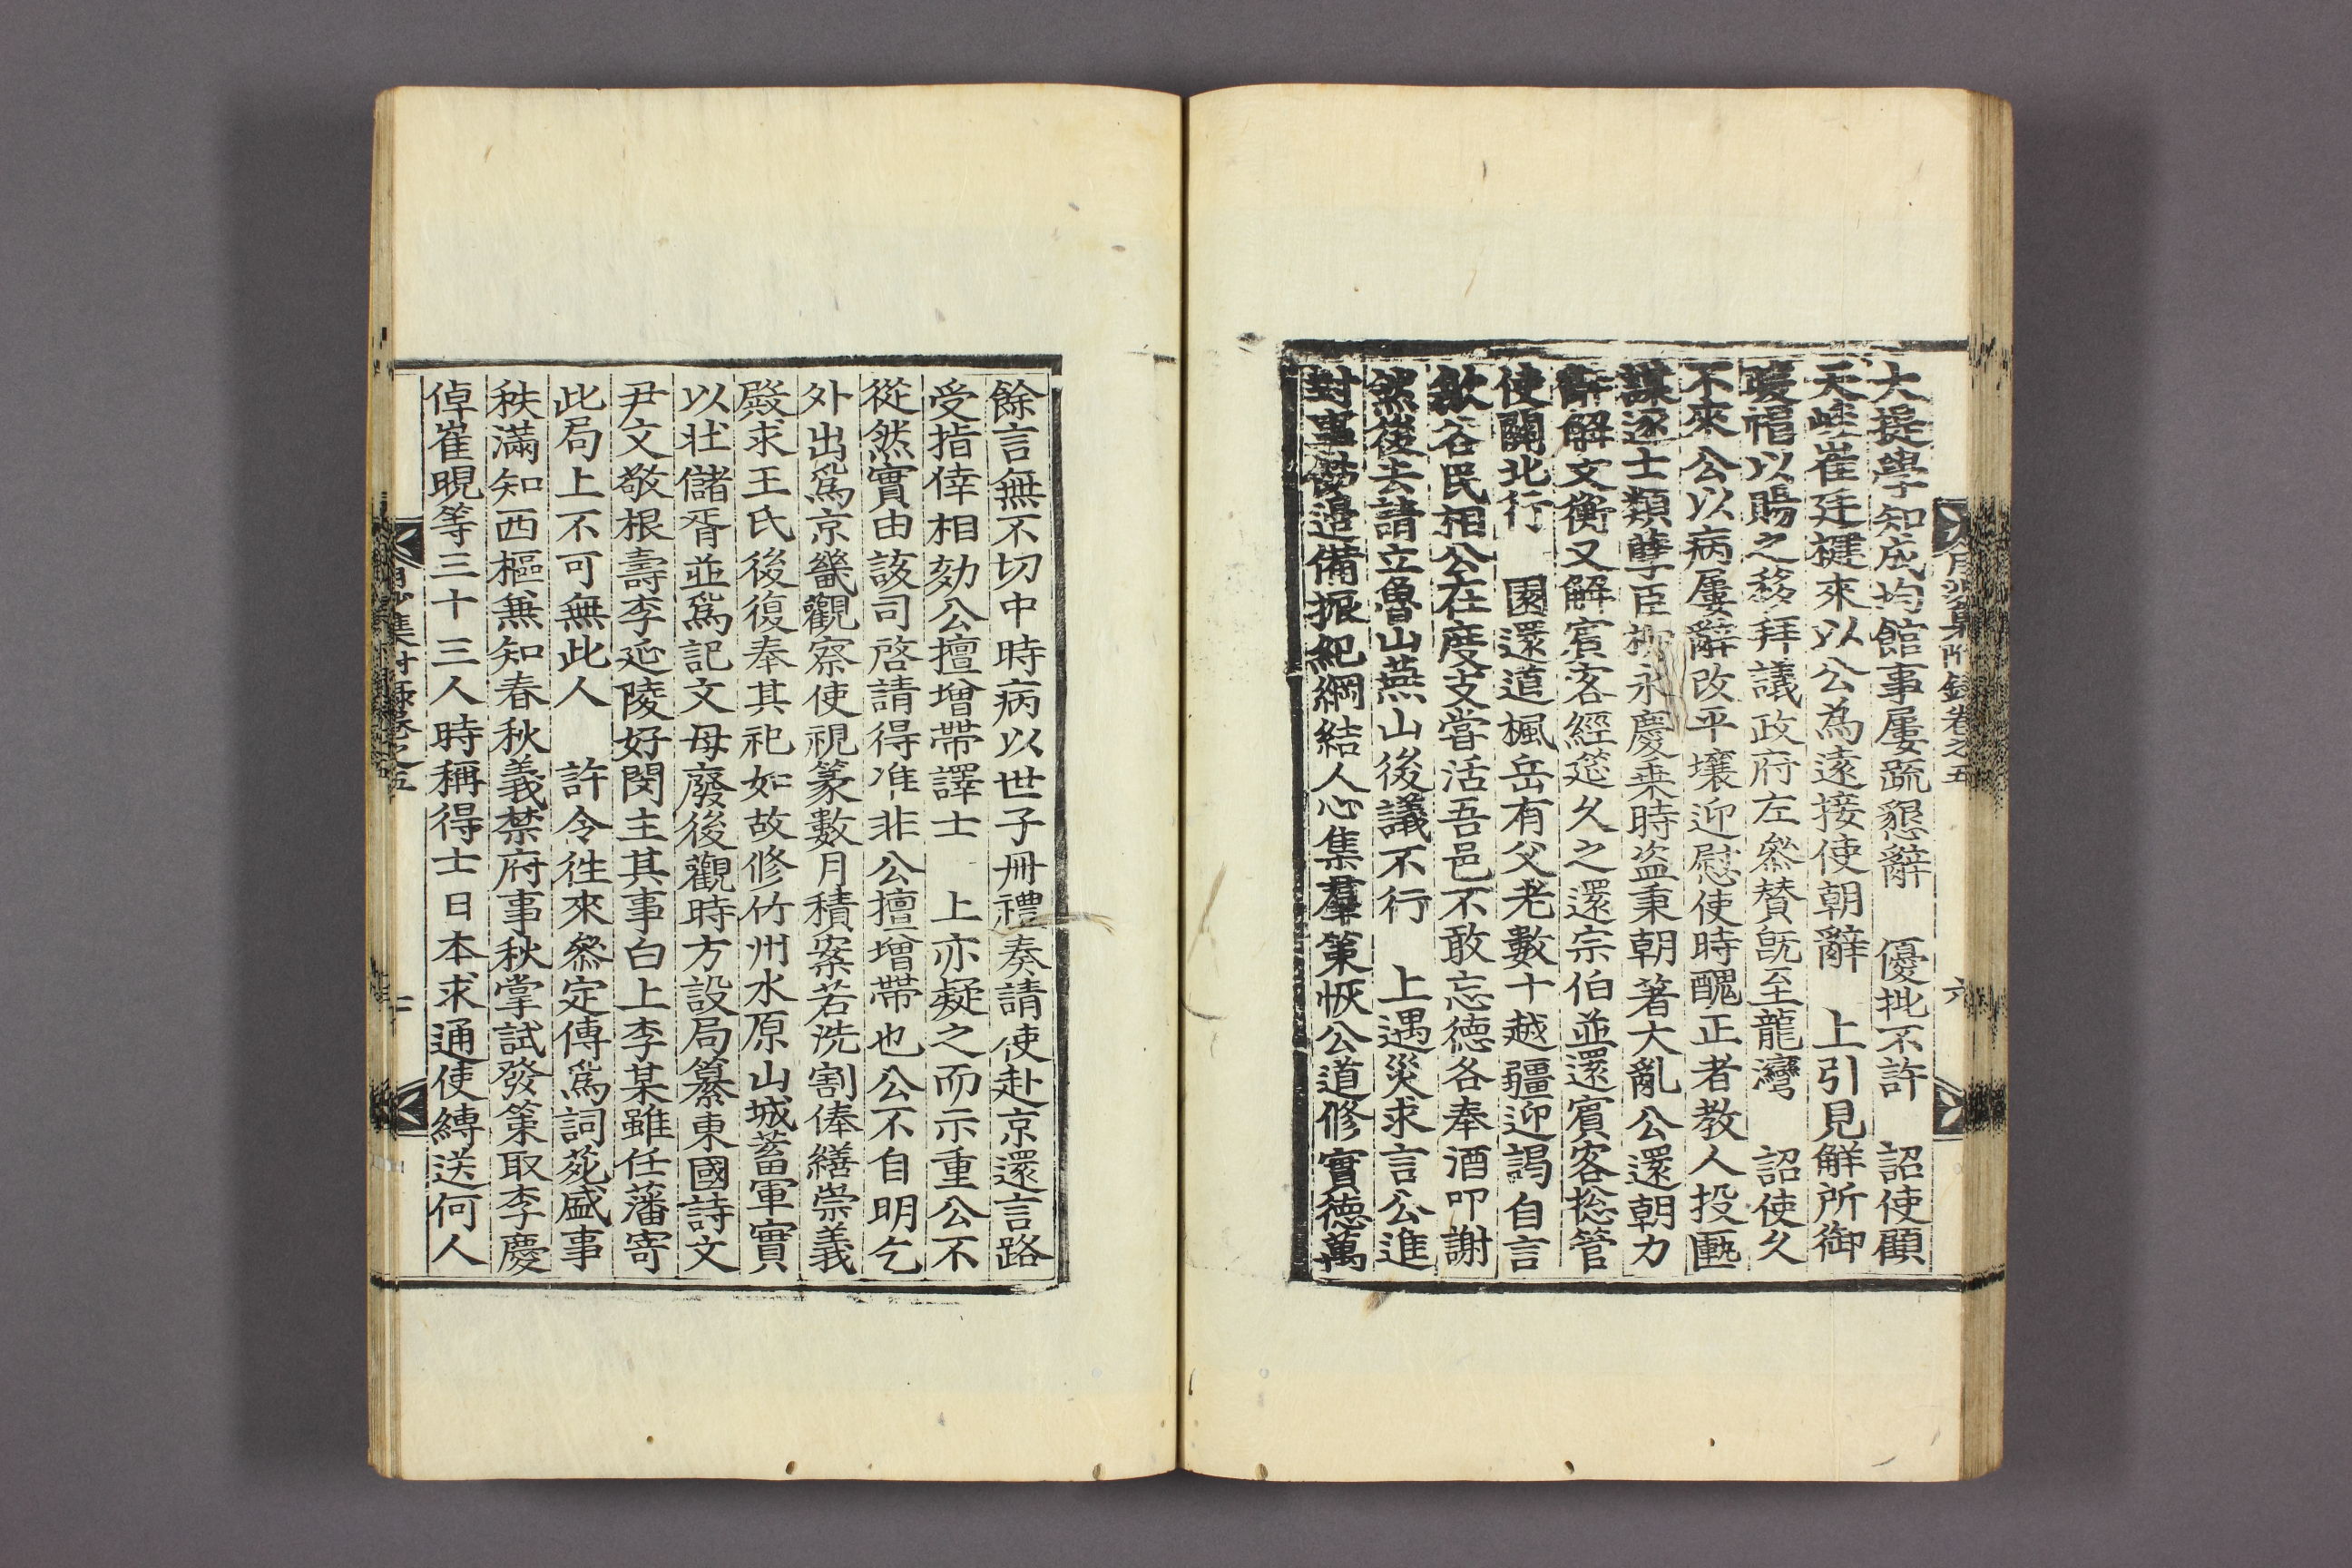 大提學知成均館事屢疏懇辭 優批不許 詔使顧
天峻崔廷健來以公為遠接使朝辭 上引見解所御
煖帽以賜之移拜議政府左參贊旣至龍灣 詔使久
不來公以病屢辭改平壤迎慰使時醜正者教人投匭
謀逐士類孽臣柳永慶乗時盗秉朝著大亂公還朝力
辭解文衡又解賓客經筵久之還宗伯並還賓客捴管
使關北行 園還道楓岳有父老數十越疆迎謁自言
歙谷民相公在度支嘗活吾邑不敢忘德各奉酒叩謝
然後去請立魯山燕山後議不行 上遇災求言公進
封事飭邉備振紀綱結人心集羣策恢公道修實德萬
月沙集附錄卷之五 六
餘言無不切中時病以世子冊禮奏請使赴京還言路
受指倖相劾公擅增帶譯士 上亦疑之而示重公不
從然實由該司啓請得准非公擅增帶也公不自明乞
外出爲京畿觀察使視篆數月積案若洗割俸繕崇義
殿求王氏後復奉其祀如故修竹州水原山城蓄軍實
以壯儲胥並爲記文母廢後觀時方設局纂東國詩文
尹文敬根壽李延陵好閔主其事白上李某雖任藩寄
此局上不可無此人 許令徃來參定傳爲詞苑盛事
秩滿知西樞兼知春秋義禁府事秋掌試發策取李慶
倬崔晛等三十三人時稱得士日本求通使縛送何人
月沙集附錄卷之五